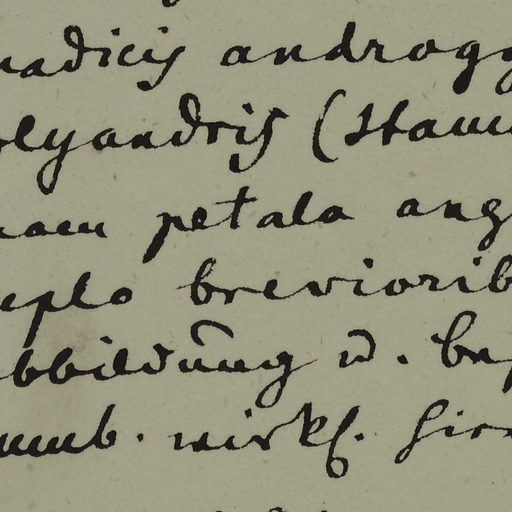 nadicis androgy
olyandris (Stam
nam petala ang
eplo breviorib
bbildung u. Be
umb. wirkl. hier